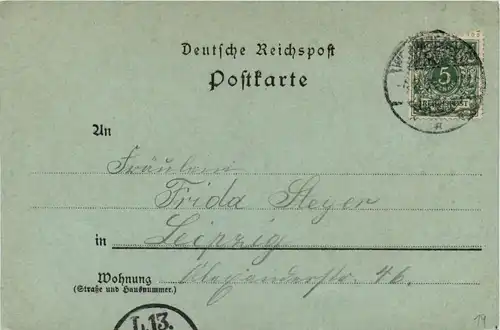 Deutsche Reichspost
Postkarte
5
REICHSPOST
An
Fräulein
Frida Steyer
in Leipzig
Wohnung Alexanderstr. 46.
(Straße und Hausnummer.)
L13.
19